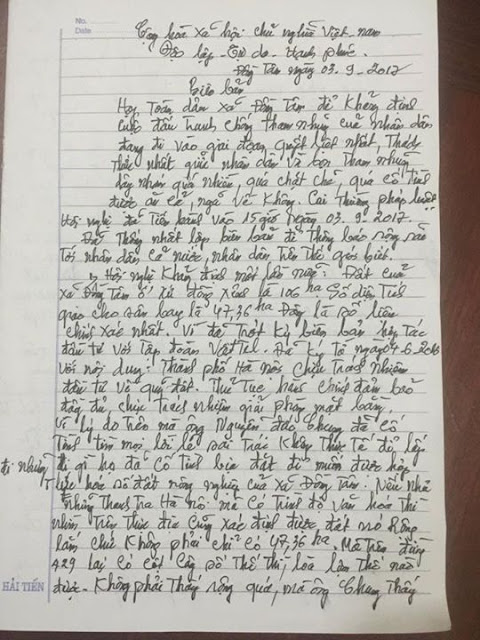 No.
Date
Cộng hòa xã hội chủ nghĩa Việt nam
Độc lập - Tự do - Hạnh phúc.
Đồng Tâm ngày 03.9.2017
Biên bản
Họp Toàn dân xã Đồng Tâm để Khẳng định
cuộc đấu tranh chống tham nhũng của nhân dân
đang đi vào giai đoạn quyết liệt nhất, Thách
Thức nhất giữa nhân dân và bọn Tham nhũng
quá nhiều, quá chắt chẽ quá cố Tình
được ăn cả, ngã về Không. Coi Thường pháp luật
Hội nghị đã Tiến hành vào 15 giờ ngày 03.9.2017.
Đã Thống nhất lập biên bản để Thông báo rộng rãi
Tới nhân dân cả nước, nhân dân Trên Thế giới biết.
Hội nghị Khẳng định một lần nữa: Đất của
xã Đồng Tâm ở xứ đồng Sênh là 106 ha. Số diện Tích
giao cho sân bay là 47,36 ha Đây là số liệu
chính xác nhất. Vì đã Trót Ký biên bản hợp Tác
đầu tư với Tập đoàn Viettel. Đã ký Tờ ngày
với nội dung: Thành phố Hà nội chịu Trách Nhiệm
đầu tư về quỹ đất. Thủ Tục hành chính đảm bảo
đầy đủ, chịu trách nhiệm giải phóng mặt bằng.
Vì lý do Trên mà ông Nguyễn Đức Chung đã cố
Tình tìm mọi lời lẽ sai Trái Không Thực Tế để lấp
đi những đi gì họ đã cố Tình bịa đặt để muốn được hợp
Thức hóa số đất nông nghiệp của xã Đồng Tâm. Nếu Nhà
Những Thanh tra Hà nội mà có Trình độ văn hóa Thì
nhìn Trên Thực địa cũng xác định được đất nó Rộng
lắm, chứ Không phải chỉ có 47,36 ha. Mà Trên đường
429 lại có cột cây số Thế Thì lòa làm Thế nào
được. Không phải Thấy rộng quá, mà ông Chung Thấy
HẢI TIẾN